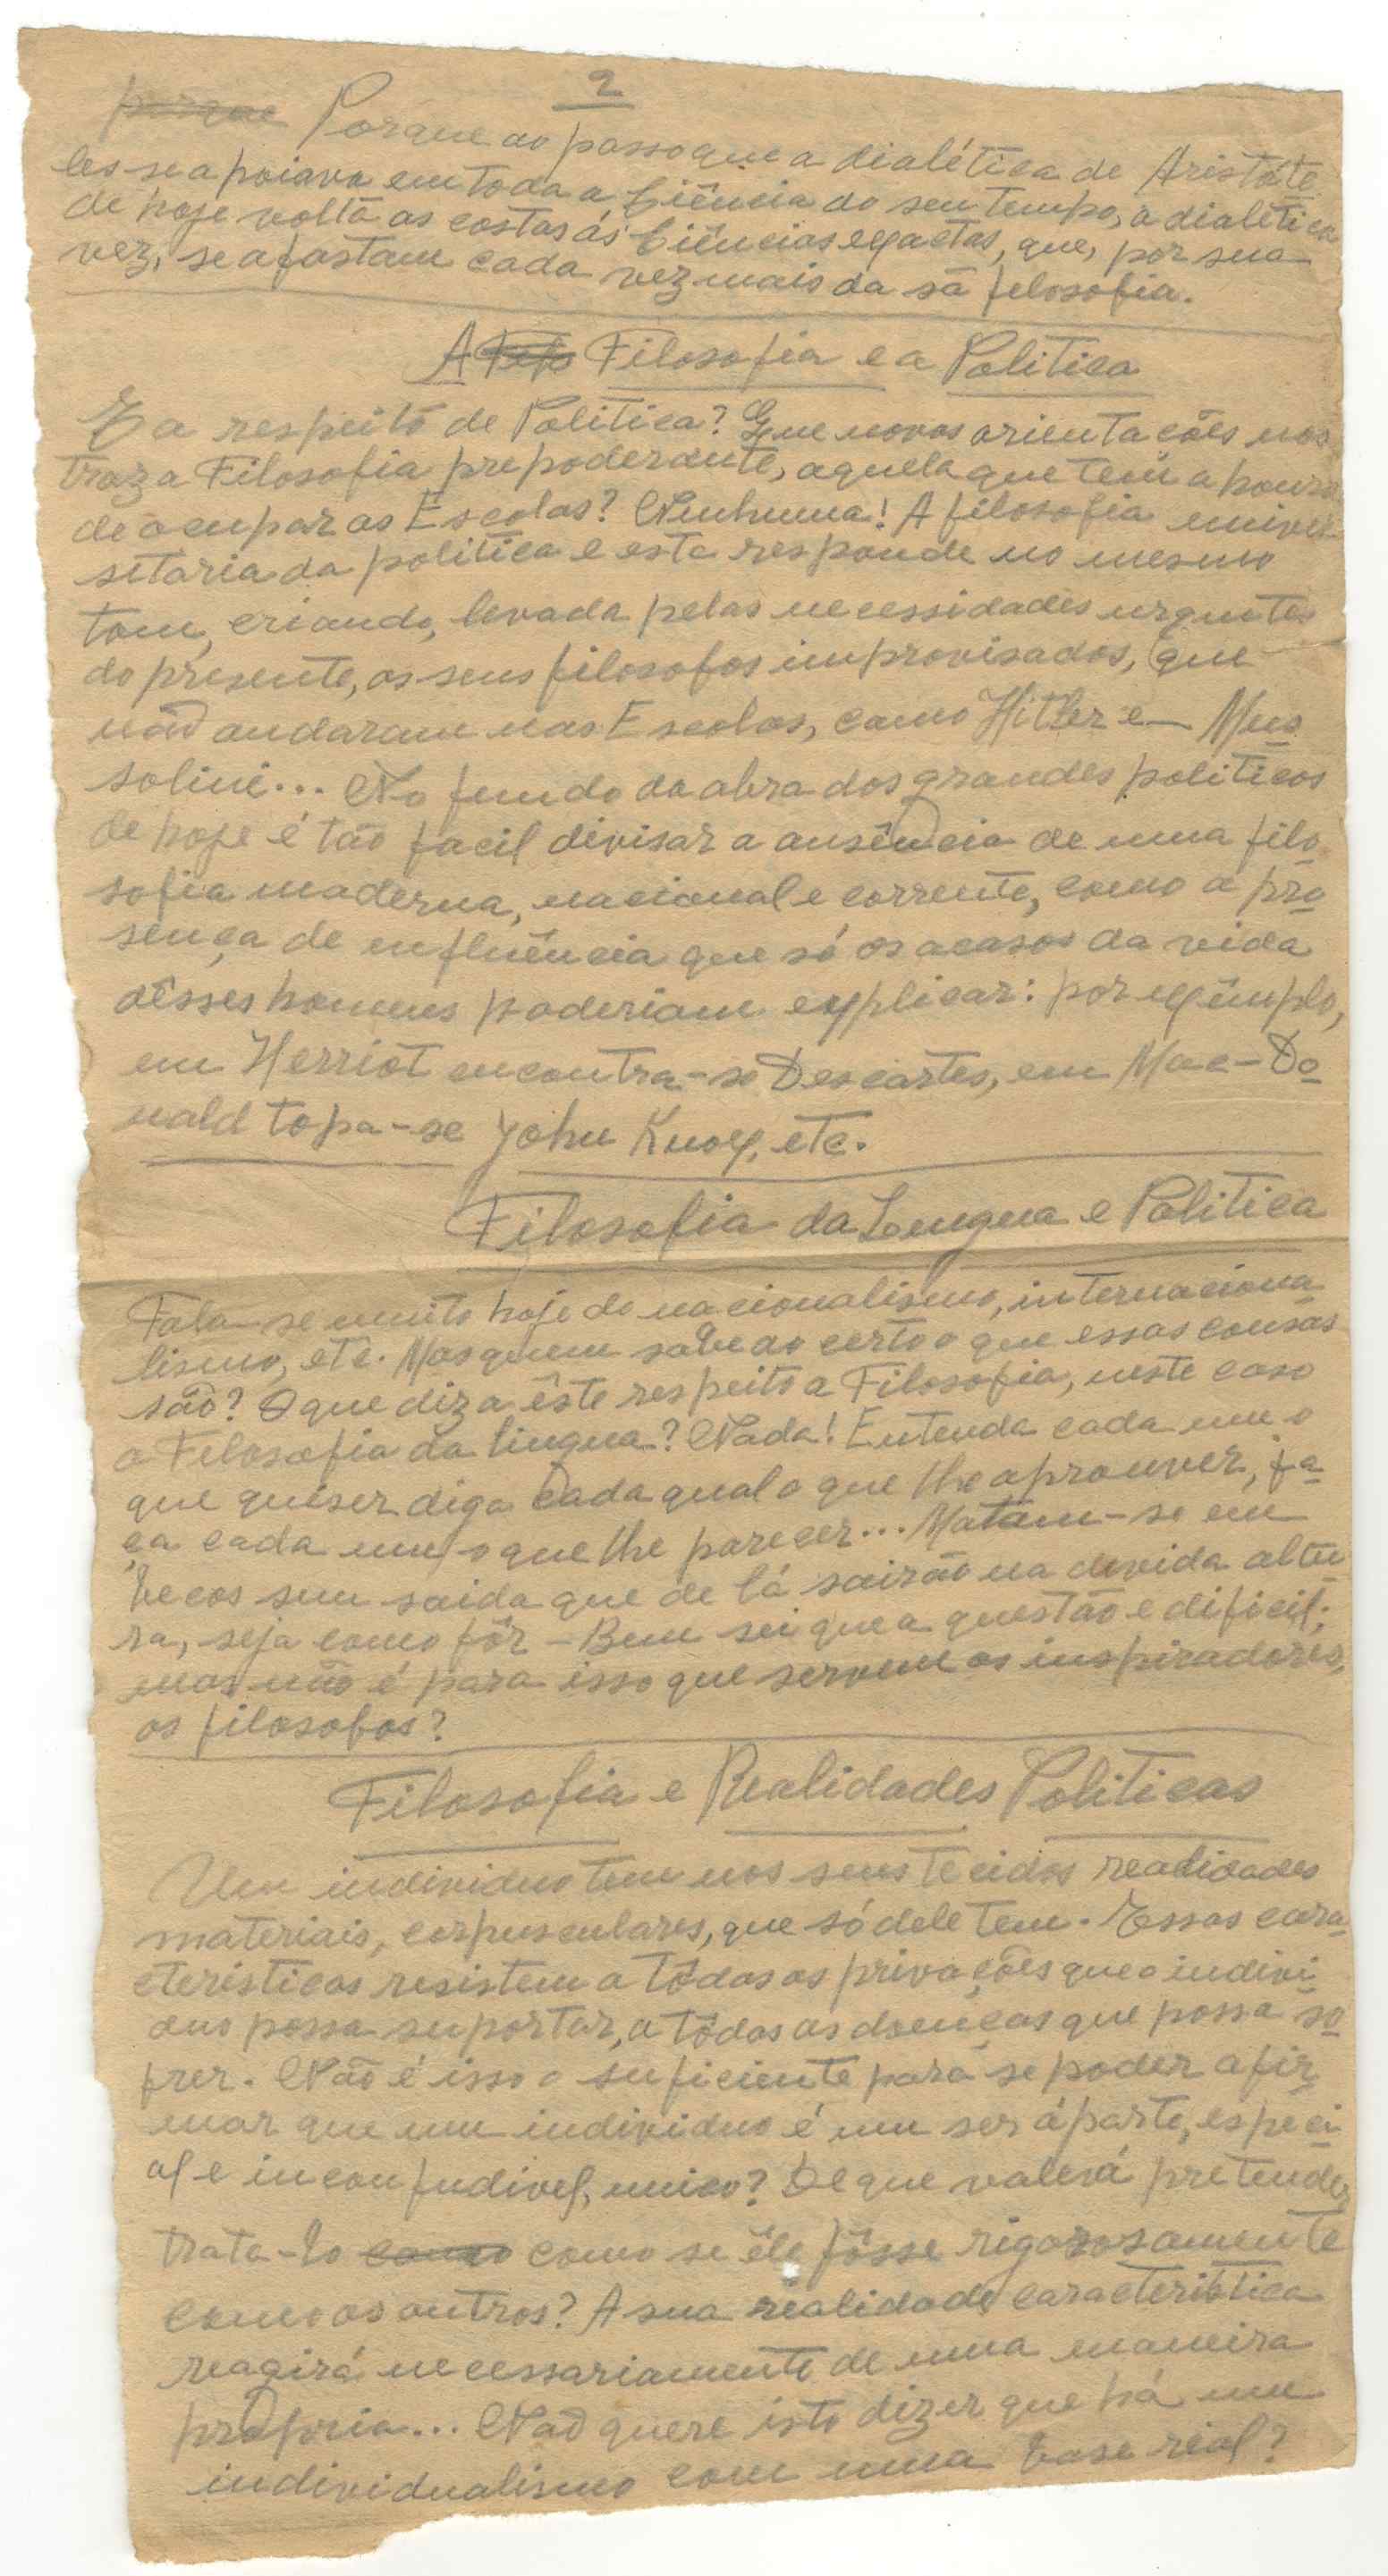 2
porque Porque ao passo que a dialética de Aristóte
les se apoiava em toda a Ciência do seu tempo, a dialética
de hoje volta as costas ás Ciências exactas, que, por sua
vez, se afastam cada vez mais da sã filosofia.
A Filosofia e a Politica
E a respeito de Politica? Que novas orientações nos
traz a Filosofia prepoderante, aquela que tem a honra
de ocupar as Escolas? Nenhuma! A filosofia univer-
sitaria da politica e esta responde no mesmo
tom, criando, levada pelas necessidades urgentes
do presente, os seus filosofos improvisados, que
não andaram nas Escolas, como Hitler e Mus
solini... No fundo da obra dos grandes politicos
de hoje é tão facil divisar a ausência de uma filo
sofia moderna, nacional e corrente, como a pre
sença de influência que só os acasos da vida
dêsses homens poderiam explicar: por exêmplo,
em Herriot encontra-se Descartes, em Mac-Do
nald topa-se John Knox, etc.
Filosofia da Lingua e Politica
Fala-se muito hoje de nacionalismo, internaciona
lismo, etc. Mas quem sabe ao certo o que essas cousas
são? O que diz a êste respeito a Filosofia, neste caso
a Filosofia da lingua? Nada! Entenda cada um o
que quiser diga cada qual o que lhe aprouver, fa
ça cada um o que lhe parecer... Matam-se em
becos sem saida que de lá sairão na devida altu
ra, seja como fôr - Bem sei que a questão e dificil;
mas não é para isso que servem os inspiradores,
os filosofos?
Filosofia e Realidades Politicas
Um individuo tem nos seus tecidos realidades
materiais, corpusculares, que só dele tem. Essas cara
cteristicas resistem a tôdas as privações que o indivi
duo possa suportar, a tôdas as doenças que possa so
frer. Não é isso o suficiente para se poder afir
mar que um individuo é um ser áparte, especi
al e inconfudivel, unico? De que valerá pretender
trata-lo como como se êle fôsse rigorosamente
como os outros? A sua realidade caracteristica
reagirá necessariamente de uma maneira
propria... Não quere isto dizer que há um
individualismo com uma base rial?